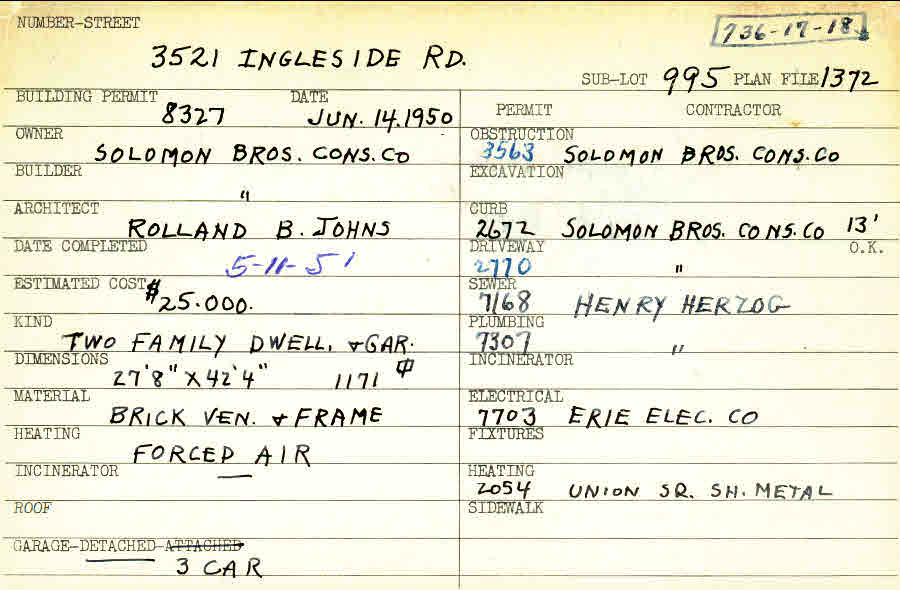 NUMBER-STREET
736-17-18
3521 INGLESIDE RD.
SUB-LOT 995 PLAN FILE 1372
BUILDING PERMIT DATE
8327 JUN. 14. 1950
OWNER
SOLOMON BROS. CONS. CO
BUILDER
"
ARCHITECT
ROLLAND B. JOHNS
DATE COMPLETED
5-11-51
ESTIMATED COST
$25.000.
KIND
TWO FAMILY DWELL. & GAR.
DIMENSIONS
27'8" X 42'4" 1171
MATERIAL
BRICK VEN. & FRAME
HEATING
FORCED AIR
INCINERATOR
—
ROOF
GARAGE-DETACHED-ATTACHED
3 CAR
PERMIT CONTRACTOR
OBSTRUCTION
3563 SOLOMON BROS. CONS. CO
EXCAVATION
CURB
2672 SOLOMON BROS. CONS. CO 13'
DRIVEWAY O.K.
2770 "
SEWER
7168 HENRY HERZOG
PLUMBING
7307 "
INCINERATOR
ELECTRICAL
7703 ERIE ELEC. CO
FIXTURES
HEATING
2054 UNION SQ. SH. METAL
SIDEWALK